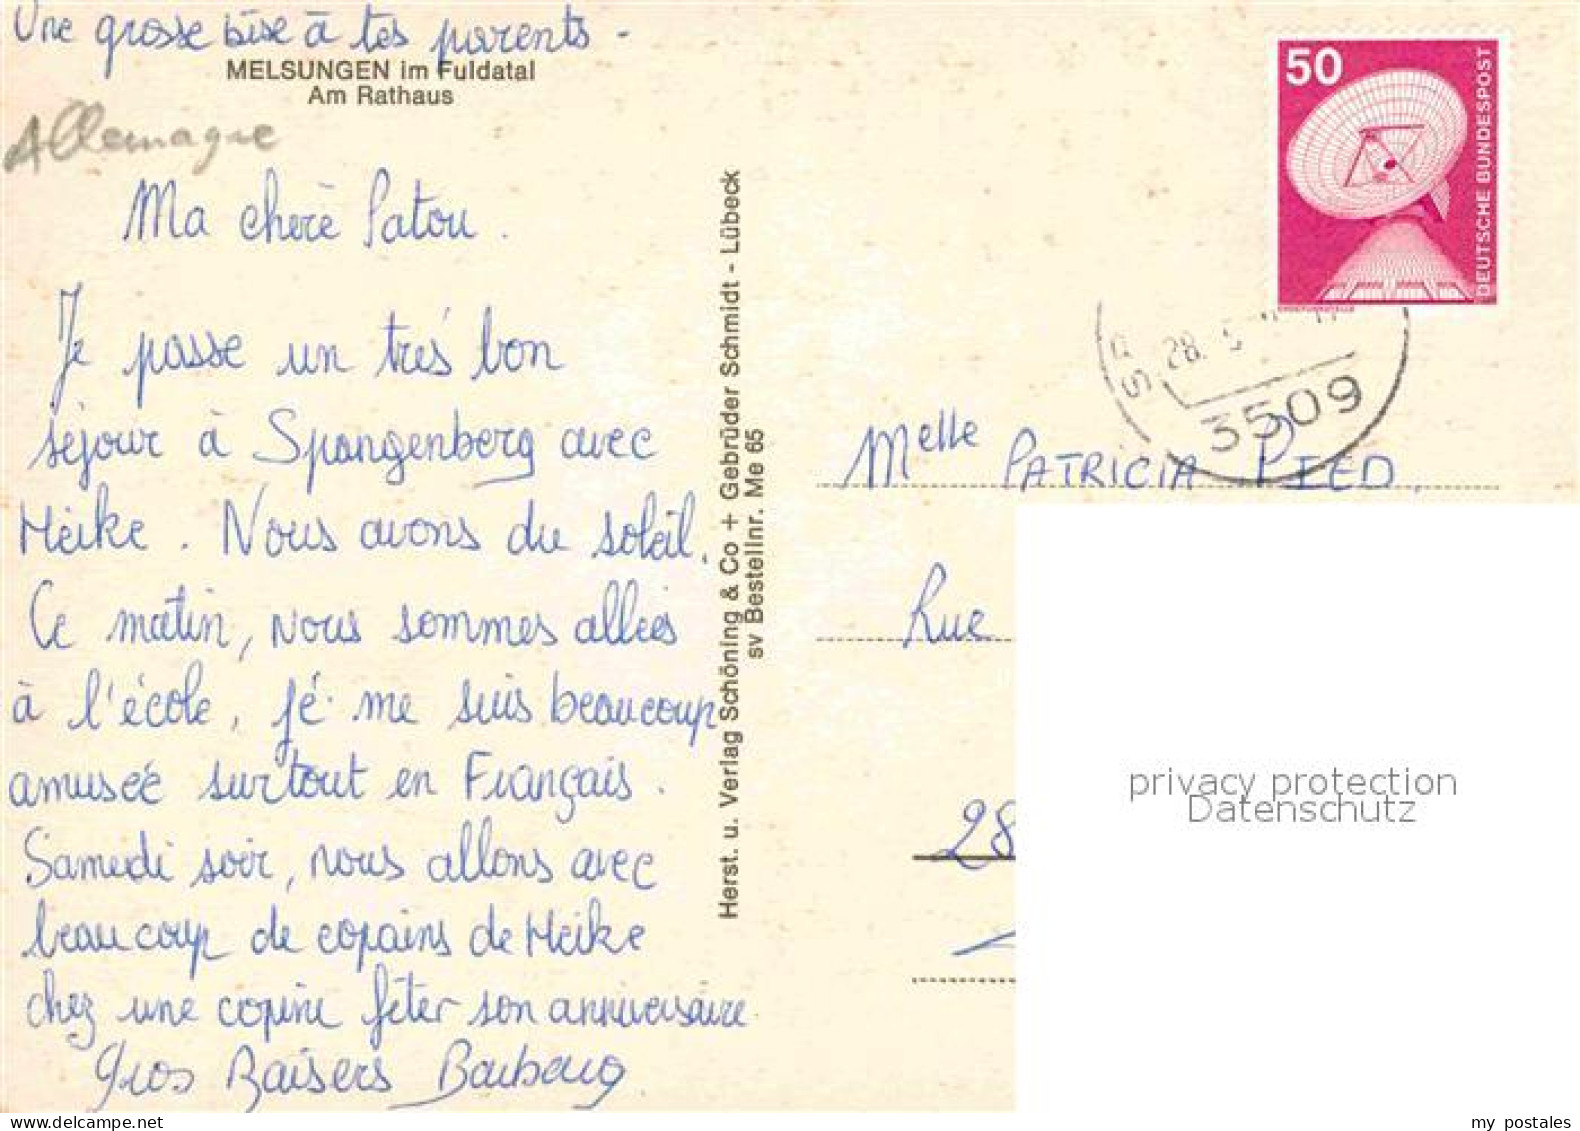 Une grosse bise à tes parents -
MELSUNGEN im Fuldatal
Am Rathaus
Allemagne
Ma cherè Patou.
Je passe un très bon
séjour à Spangenberg avec
Heike. Nous avons du soleil.
Ce matin, nous sommes allées
à l'école, jé me suis beaucoup
amusée surtout en Français.
Samedi soir, nous allons avec
beaucoup de copains de Heike
chez une copine fêter son anniversaire
Gros Baisers
Herst. u. Verlag Schöning & Co + Gebrüder Schmidt - Lübeck
sv Bestellnr. Me 65
50
DEUTSCHE BUNDESPOST
28. 5
3509
Melle PATRICIA PIED.
Rue
28
privacy protection
Datenschutz
my postales